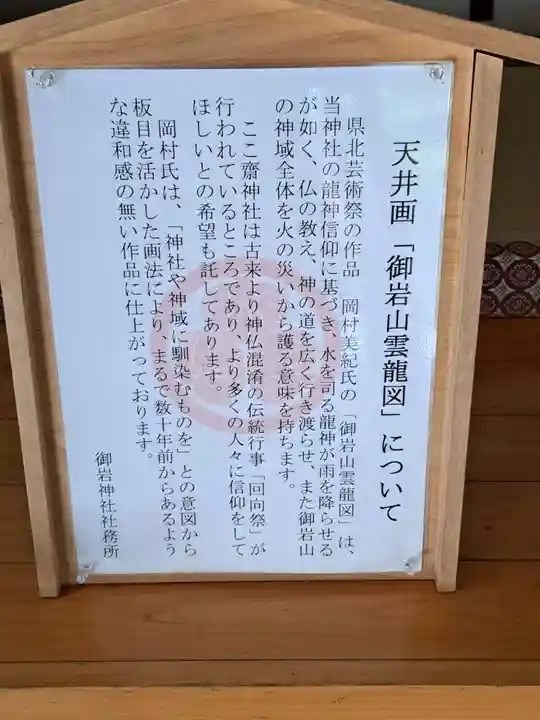 天井画「御岩山雲龍図」について
県北芸術祭の作品 岡村美紀氏の「御岩山雲龍図」は、
当神社の龍神信仰に基づき、水を司る龍神が雨を降らせる
が如く、仏の教え、神の道を広く行き渡らせ、また御岩山
の神域全体を火の災いから護る意味を持ちます。
ここ齋神社は古来より神仏混淆の伝統行事「回向祭」が
行われているところであり、より多くの人々に信仰をして
ほしいとの希望も託してあります。
岡村氏は、「神社や神域に馴染むものを」との意図から
板目を活かした画法により、まるで数十年前からあるよう
な違和感の無い作品に仕上がっております。
御岩神社社務所